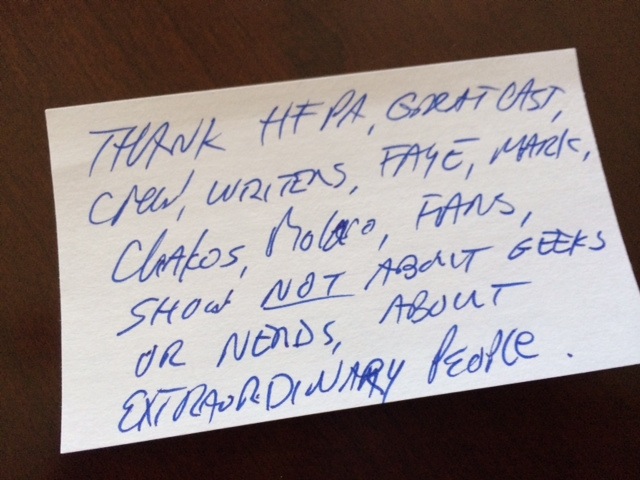 THANK HFPA, GREAT CAST,
CREW, WRITERS, FAYE, MARK,
CHAKOS, MOLARO, FANS,
SHOW NOT ABOUT GEEKS
OR NERDS, ABOUT
EXTRAORDINARY PEOPLE.